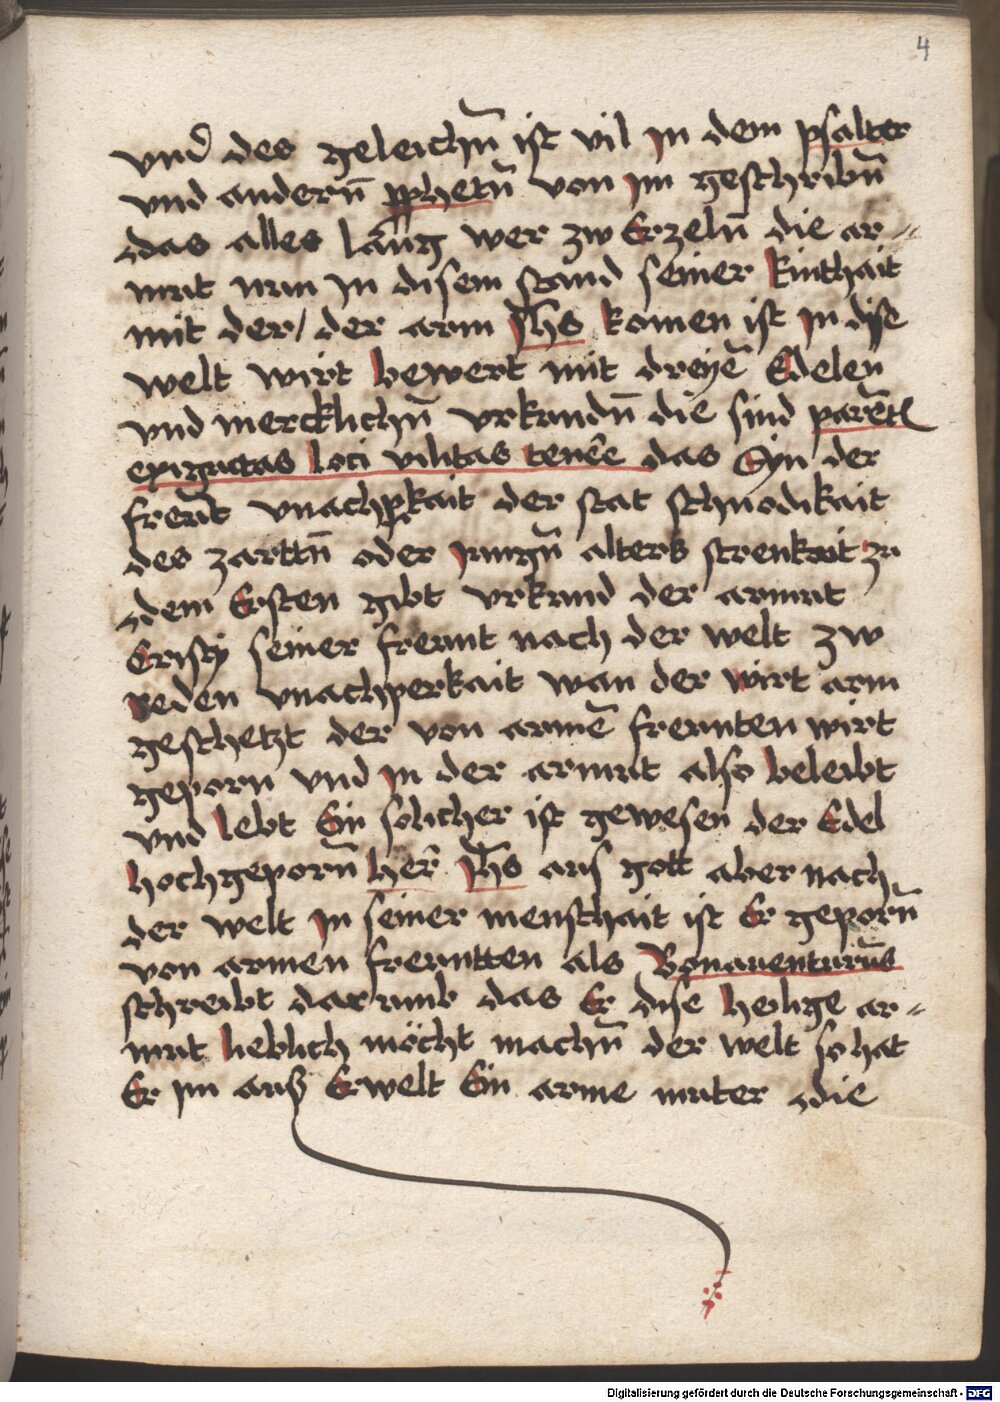 4
vnd des geleichn̄ ist vil jn dem psalter
vnd andern̄ pphetn̄ von jm geschribn̄
das alles lang wer zw Erzeln̄ die ar=
mut nun jn disem stand seiner kinthait
mit der / der arm Jhs komen ist jn dise
welt wirt bewert mit dreyē Edelen
vnd mercklichn̄ vrkundn̄ die sind parēt
exiguitas loci vilitas tenēe das Syn der
freūt vnachpkait der stat schnodikait
des zarttn̄ oder jungn̄ alters strenkait zu
dem Ersten gibt vrkund der armut
Cristy seiner freunt nach der welt zw
reden vnachperkait wan der wirt arm
geschetzt der von armē freunten wirt
geporn vnd jn der armut also beleibt
vnd lebt Ein solicher ist gewesen der Edel
hochgeporn̄ her̄ Jhs aus gott aber nach
der welt jn seiner menschait ist Er geporn̄
von armen freuntten als Bonauenturus
schreibt darumb das Er dise heilige ar=
mut lieblich möcht machn̄ der welt so hat
Er jm auß Erwelt Ein arme muter die
Digitalisierung gefördert durch die Deutsche Forschungsgemeinschaft - DFG